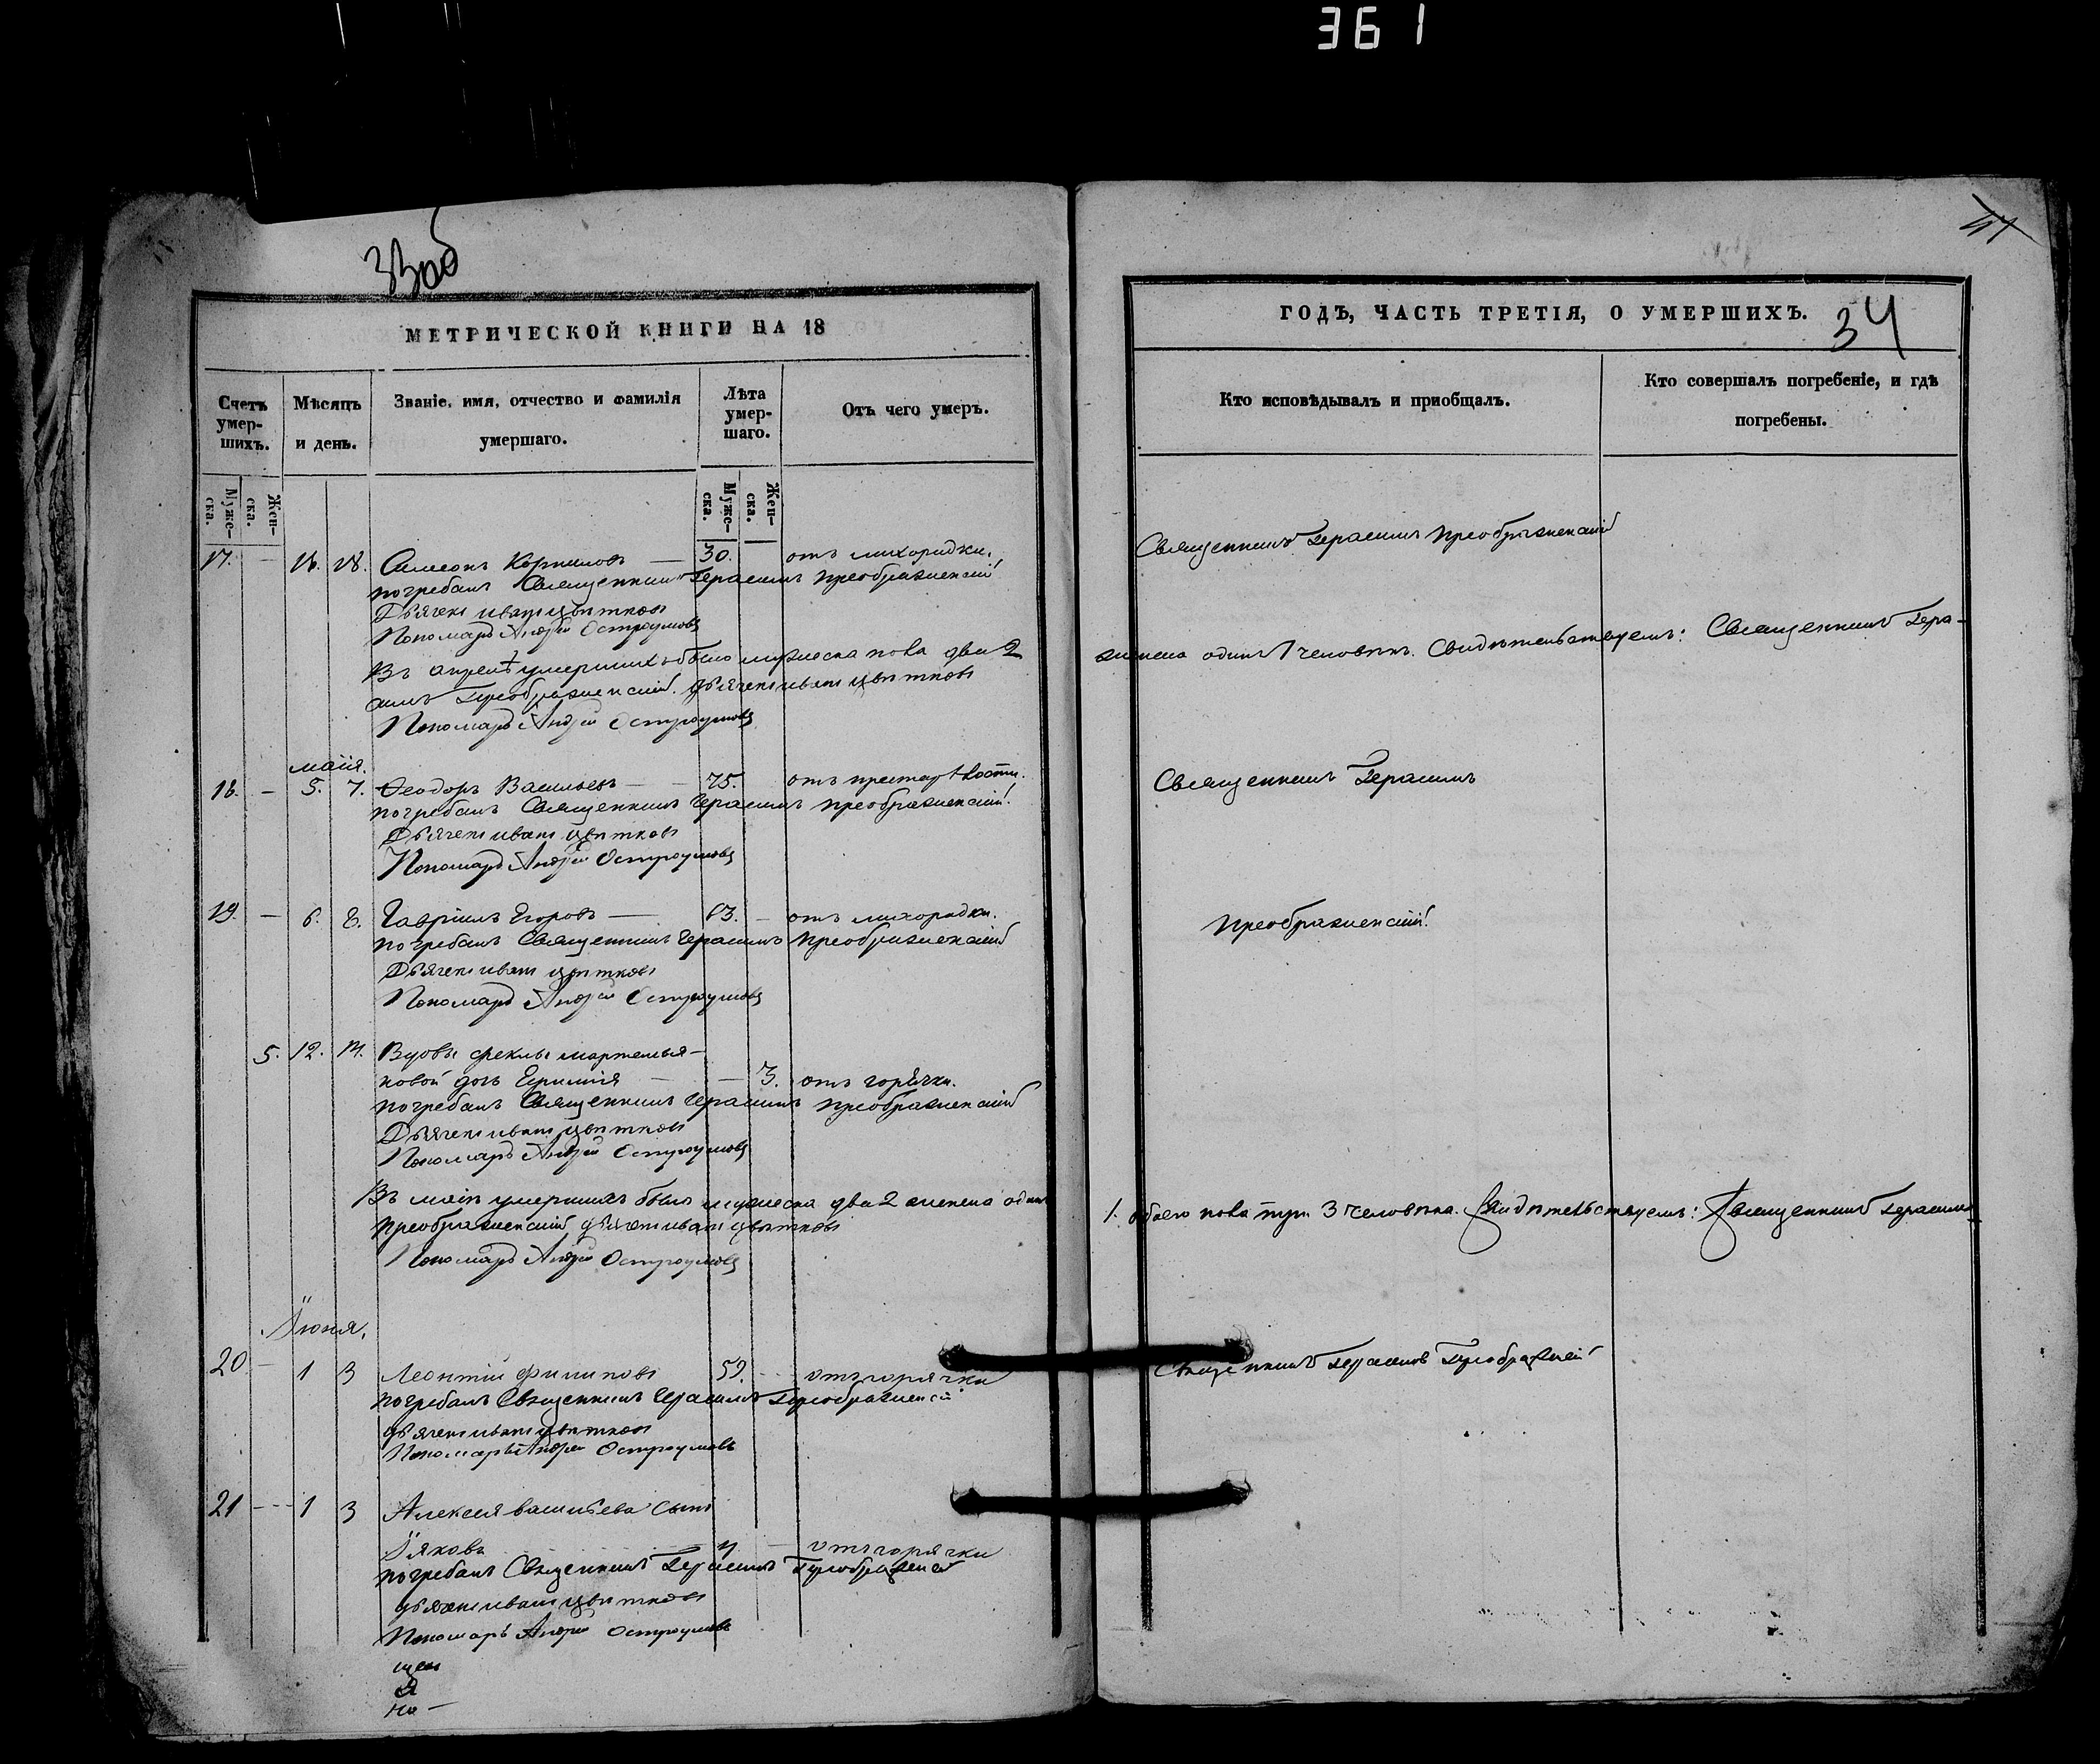 361
33об
МЕТРИЧЕСКОЙ КНИГИ НА 18
Счетъ умер-шихъ.
Мѣсяцъ и день.
Званіе, имя, отчество и фамилія умершаго.
Лѣта умер-шаго.
Отъ чего умеръ.
Муже-ска. Жен-ска.
Муже-ска. Жен-ска.
17. — 16. 18. Симеонъ Корниловъ — 30. отъ лихорадки.
погребалъ Священникъ Герасимъ Преображенскій
Дьячекъ Иванъ Цвѣтковъ
Пономарь Андрей Остроумовъ
Въ апрелѣ умершихъ было мужеска пола два 2
симъ Преображенскій. Дьячекъ Иванъ Цвѣтковъ
Пономарь Андрей Остроумовъ
маія.
18. — 5. 7. Ѳеодоръ Васильевъ — 75. отъ престарѣлости.
погребалъ Священникъ Герасимъ Преображенскій.
Дьячекъ Иванъ Цвѣтковъ
Пономарь Андрей Остроумовъ
19. — 6. 8. Гавріилъ Егоровъ — 63. — отъ лихорадки.
погребалъ Священникъ Герасимъ Преображенскій
Дьячекъ Иванъ Цвѣтковъ
Пономарь Андрей Остроумовъ
5. 12. 14. Вдовы Феклы
новой дочь — — 3. отъ горячки.
погребалъ Священникъ Герасимъ Преображенскій
Дьячекъ Иванъ Цвѣтковъ
Пономарь Андрей Остроумовъ
Въ маіѣ умершихъ было мужеска два 2 женска одинъ
Преображенскій дьячекъ Иванъ Цвѣтковъ
Пономарь Андрей Остроумовъ
Іюня.
20 — 1 3 Леонтій Филиповъ 59. отъ горячки
погребалъ Священникъ Герасимъ Преображенскій
дьячекъ Иванъ Цвѣтковъ
Пономарь Андрей Остроумовъ
21 — 1 3 Алексея Васильева сынъ
Іяковъ 4 отъ горячки
погребалъ Священникъ Герасимъ Преображенскій
дьячекъ Иванъ Цвѣтковъ
Пономарь Андрей Остроумовъ
ГОДЪ, ЧАСТЬ ТРЕТІЯ, О УМЕРШИХЪ.
34
Кто исповѣдывалъ и пріобщалъ.
Кто совершалъ погребеніе, и гдѣ погребены.
Священникъ Герасимъ Преображенскій
женска одинъ 1 человѣкъ. Свидѣтельствуемъ: Священникъ Гера-
Священникъ Герасимъ
Преображенскій.
1. обоего пола три 3 человѣка. Свидѣтельствуемъ: Священникъ Герасимъ
Священникъ Герасимъ Преображенскій